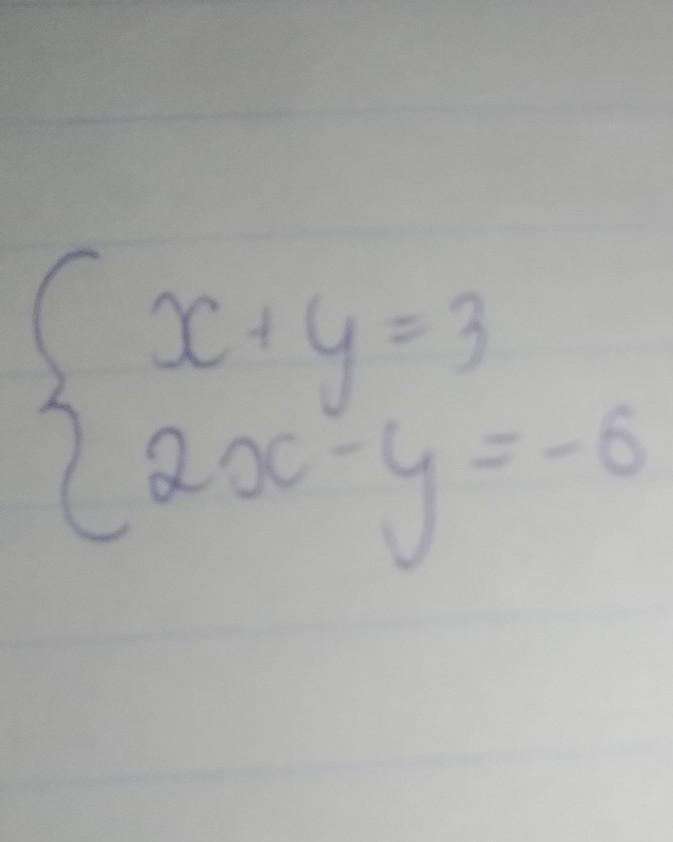 x + y = 3
2x - y = -6